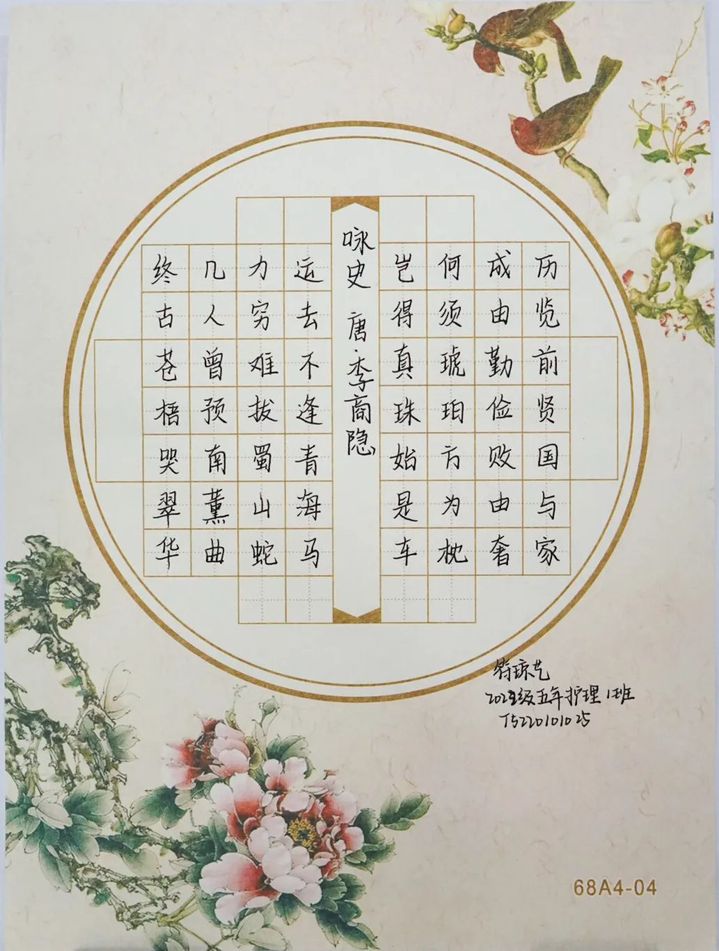 历览前贤国与家
成由勤俭败由奢
何须琥珀方为枕
岂得真珠始是车
咏史 唐·李商隐
运去不逢青海马
力穷难拔蜀山蛇
几人曾预南薰曲
终古苍梧哭翠华
符琼艺
级五年护理1班
T5220101025
68A4-04